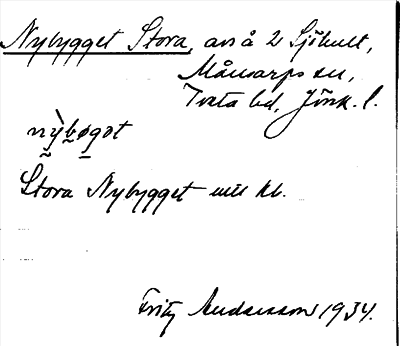 Nybygget Stora, avs å 2 Sjöhult,
Månsarps sn,
Tveta hd, Jönk. l.
nỳbøgət
Stora Nybygget
Fritz Andersson 1934.